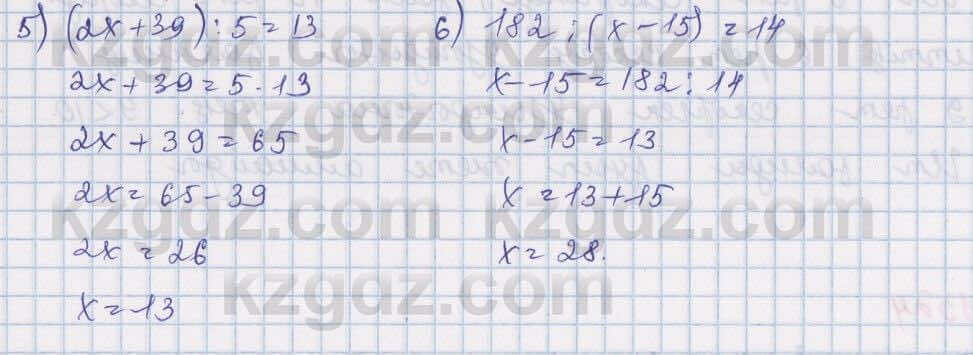 5) (2x+39):5=13
2x+39=5·13
2x+39=65
2x=65-39
2x=26
x=13
6) 182:(x-15)=14
x-15=182:14
x-15=13
x=13+15
x=28.
kzgdz.com
kzgdz.com
kzgdz.com
kzgdz.com
kzgdz.com
kzgdz.com